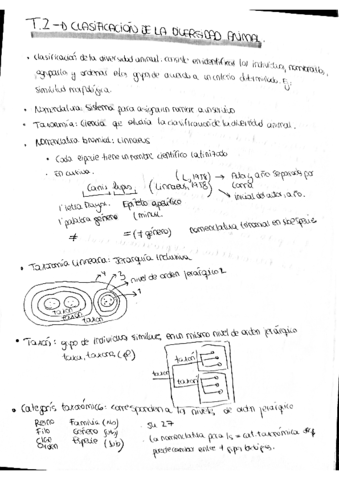 T.2 → CLASIFICACIÓN DE LA DIVERSIDAD ANIMAL.
• Clasificación de la diversidad animal: consiste en identificar los individuos, nombrarlos,
agruparlos y ordenar a los grupos de acuerdo a un criterio determinado. Ej
Similitud morfológica.
• Nomenclatura: Sistema para asignar un nombre a
• Taxonomía: Ciencia que estudia la clasificación de la diversidad animal.
• Nomenclatura binomial: Linnaeus
• Cada especie tiene un nombre científico latinizado
• En cursiva.
Canis lupus
(L, 1758)
(Linnaeus, 1758)
→ Autor y año separados por
coma
inicial del autor, año.
1ª letra Mayus.
1ª palabra género
Epíteto específico
(minus.
≠
= (≠ género)
nomenclatura trinomial en subespecies
• Taxonomía Linneana: Jerarquía Inclusiva
4
3
nivel de orden jerárquico 2
1
taxón
taxón
taxón
• Taxón: grupo de individuos similares, en un mismo nivel de orden jerárquico
taxa, taxones (pl)
taxón
taxón
taxón
• Categoría taxonómica: corresponden a los niveles de orden jerárquico
Reino Familia
Filo Género
Clase Especie
Orden
• Su 27
• La nomenclatura para la = cat. taxonómica
puede cambiar entre ≠ grupos